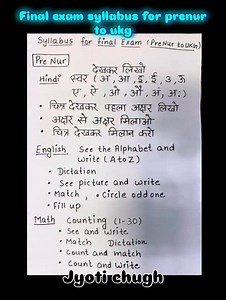 Final exam syllabus for prenur
to ukg
Syllabus for final Exam (PreNur to UKG)
Pre Nur
देखकर लिखो
Hindi स्वर (अ, आ, इ, ई, उ, ऊ
ए, ऐ, ओ, औ, अं, अ:)
• चित्र देखकर पहला अक्षर लिखो
• अक्षर से अक्षर मिलाओ
• चित्र देखकर मिलान करो
English See the Alphabet and
write (A to Z)
• Dictation
• See picture and write
• Match, • Circle odd one
• Fill up
Math Counting (1-30)
• See and write
• Match Dictation
• Count and match
• Count and Write
Jyoti chugh